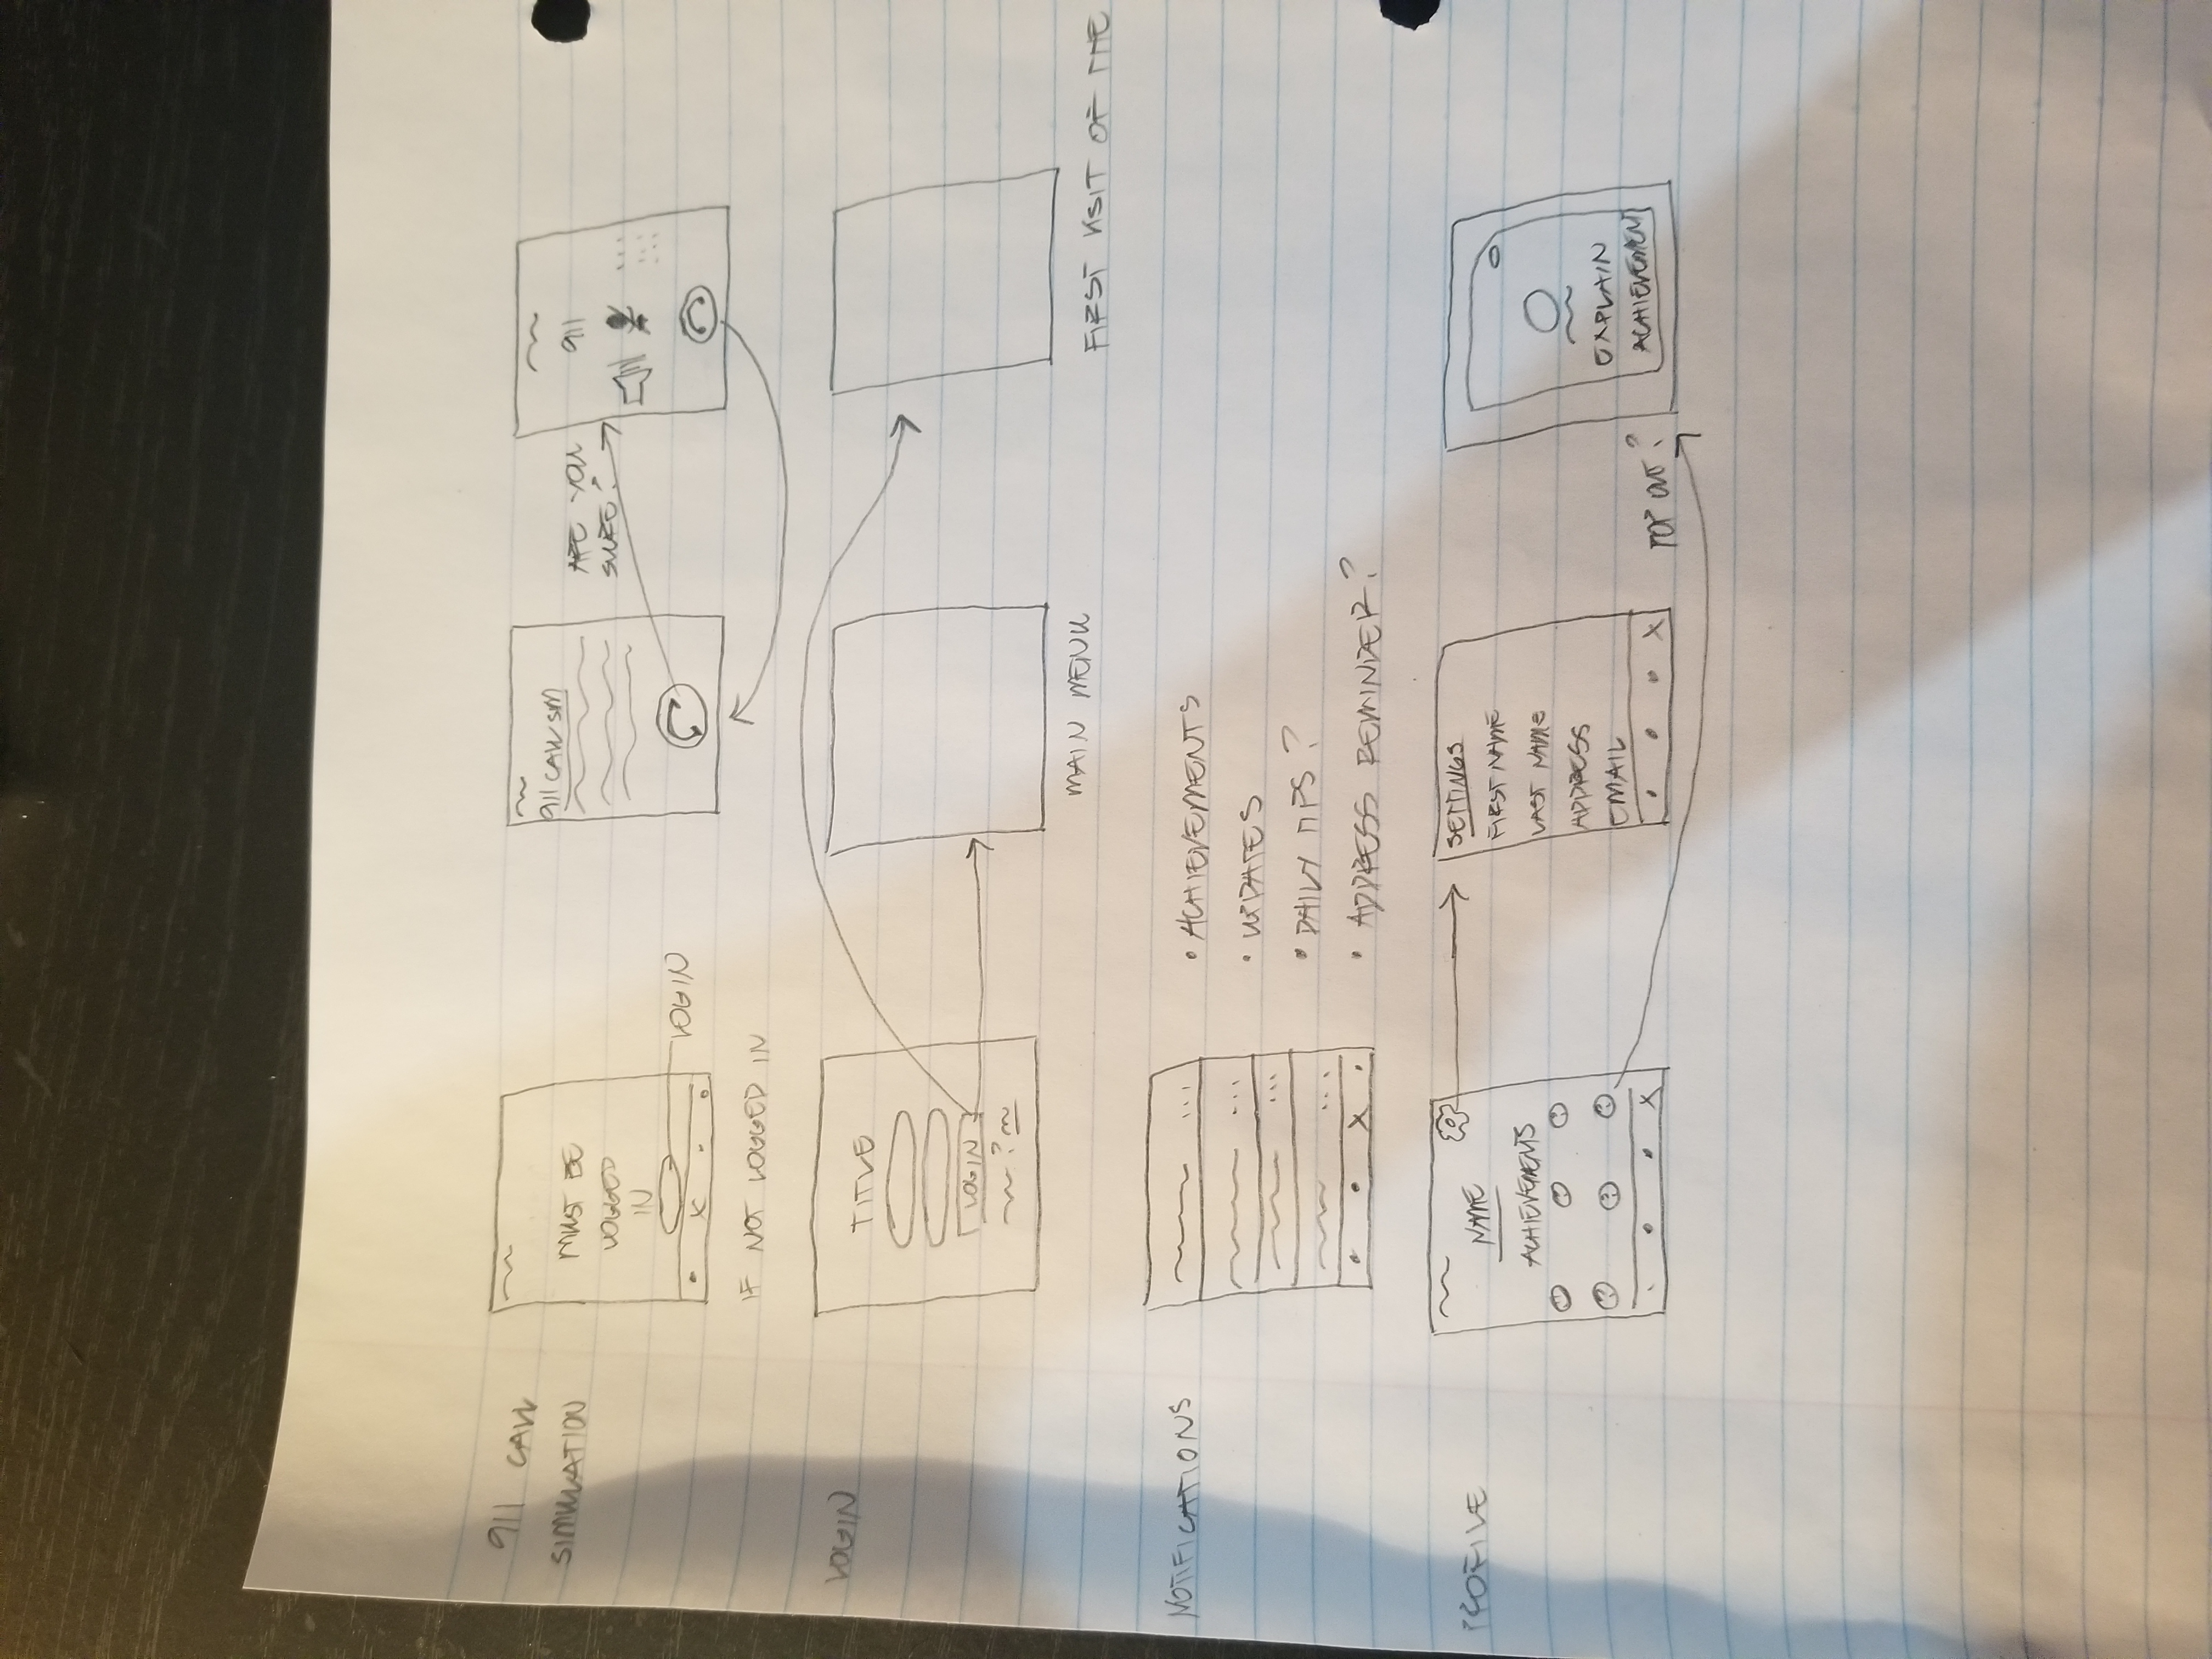 911 CALL
SIMULATION
MUST BE
LOGGED
IN
LOGIN
IF NOT LOGGED IN
911 CALL SIM
ARE YOU
SURE?
911
LOGIN
TITLE
LOGIN
?
MAIN MENU
FIRST VISIT OF THE
NOTIFICATIONS
• ACHIEVEMENTS
• UPDATES
• DAILY TIPS?
• ADDRESS REMINDER?
PROFILE
NAME
ACHIEVEMENTS
SETTINGS
FIRST NAME
LAST NAME
ADDRESS
EMAIL
POP OUT?
EXPLAIN
ACHIEVEMENT